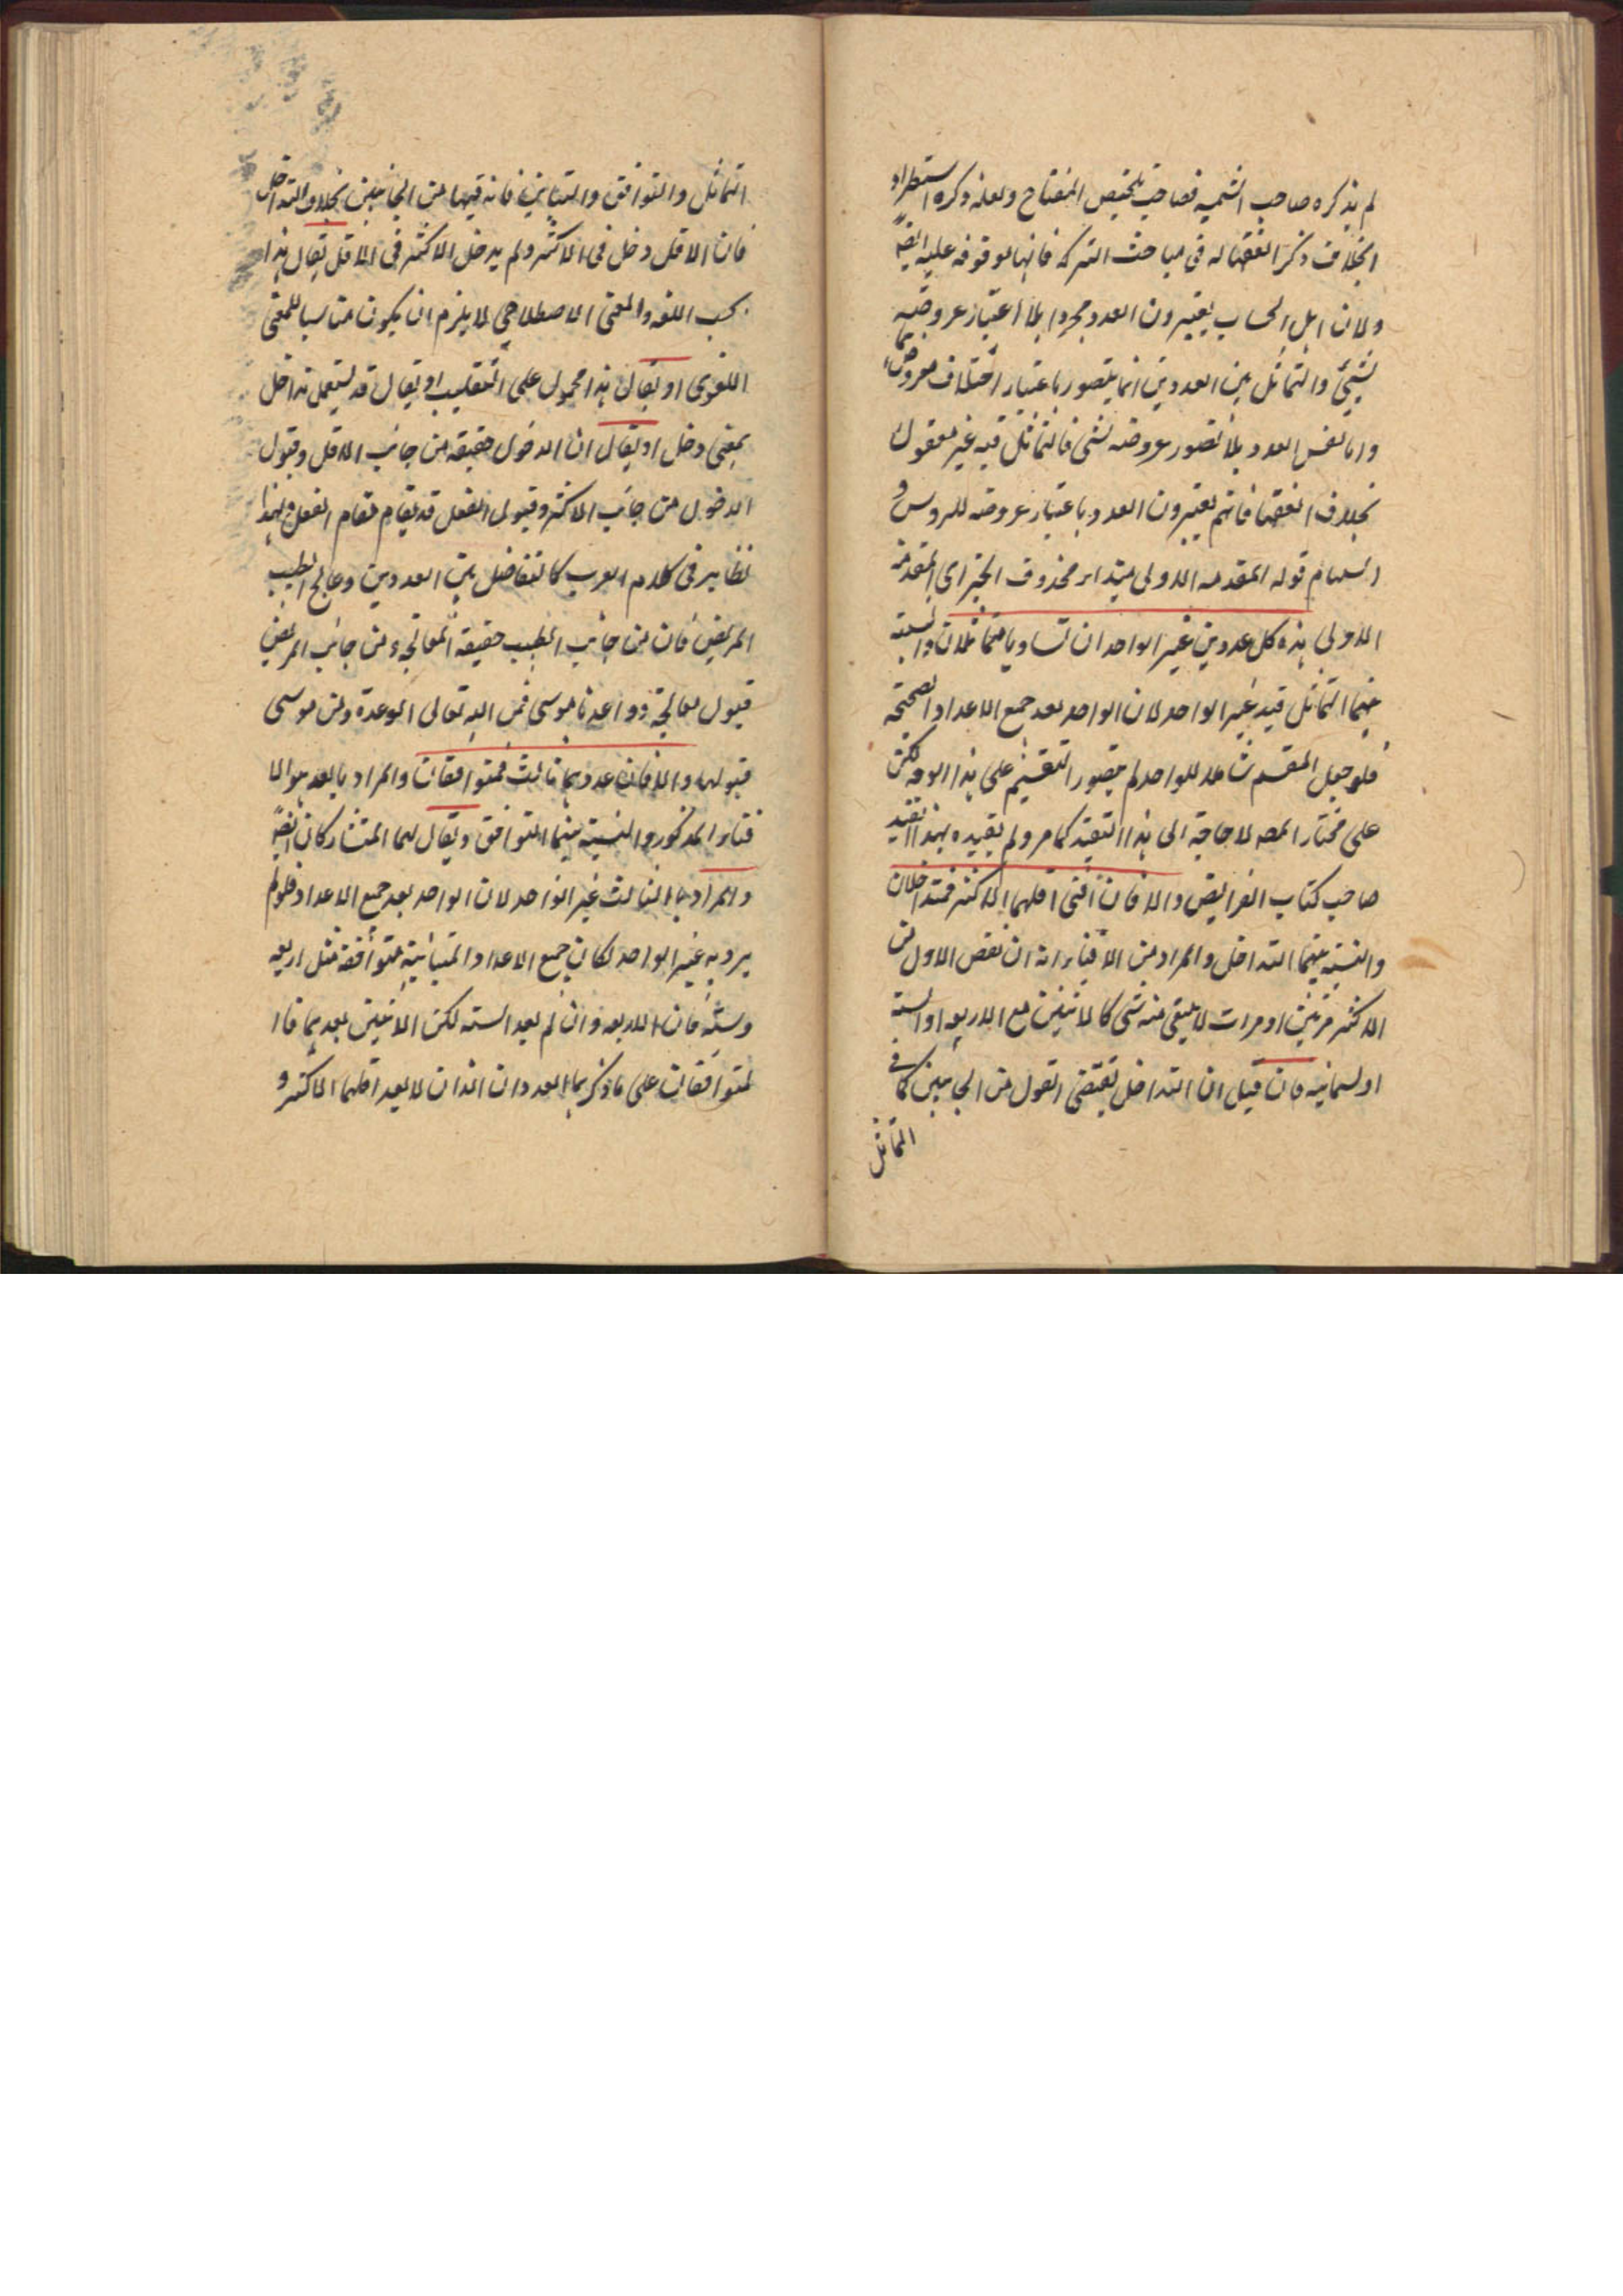 لم يذكره صاحب الشمسيه فصاحب تلخيص المفتاح ولعله ذكره استطرادا
بخلاف ذكر الفقها له في مباحث التركه فانها موقوفه عليه ايضا
ولان اهل الحساب يعتبرون العدد مجردا بلا اعتبار عروضيه
لشيئ والتماثل بين العددين انما يتصور باعتبار اختلاف معروضهما
واما نفس العدد بلا تصور عروضه لشى فالتماثل فيه غير معقول
بخلاف الفقها فانهم يعتبرون العدد باعتبار عروضه للروس و
السهام قوله المقدمه الاولى مبتداء محذوف الخبر اى المقدمة
الاولى هذه كل عددين غير الواحد ان تساويا فتماثلان والنسبة
بينهما التماثل قيد غير الواحد لان الواحد يعد جميع الاعداد الصحيحة
فلو جعل المقسم شاملا للواحد لم يتصور التقسيم على هذا الوجه لكن
على مختار المصه لا حاجة الى هذا التقيد كما مر ولم يقيده بهذا القيد
صاحب كتاب الفرايض والا فان افنى اقلهما الاكثر فمتداخلان
والنسبة بينهما التداخل والمراد من الافناء انه ان نقص الاول من
الاكثر مرتين او مرات لا يبقى منه شى كالاثنين مع الاربعه او الستة
او لسمانيه فان قيل ان التداخل يقتضى القول من الجانبين كما في
التماثل
التماثل والتوافق والتباين فانه فيها من الجانبين بخلاف التداخل
فان الاقل دخل في الاكثر ولم يدخل الاكثر في الاقل يقال هذا
بحسب اللغه والمعنى الاصطلاحي لا يلزم ان يكون مناسبا للمعنى
اللغوى او يقال هذا محمول على التغليب او يقال قد يستعمل تداخل
بمعنى دخل او يقال ان الدخول حقيقه من جانب الاقل وقبول
الدخول من جانب الاكثر وقبول الفعل قد يقام مقام الفعل ولهذا
نظاير في كلام العرب كالتفاضل بين العددين وعالج الطبيب
المريض فان من جانب الطبيب حقيقة المعالجه ومن جانب المريض
قبول معالجته وواعدنا موسى فمن الله تعالى الوعدة ومن موسى
قبولها والا فان عدهما ثالث فمتوافقان والمراد بالعد هو الا
فناء المذكور والنسبة بينهما التوافق ويقال لهما المتشاركان ايضا
والمراد بالثالث غير الواحد لان الواحد يعد جميع الاعداد فلو لم
يرد به غير الواحد لكان جميع الاعداد المتباينة متوافقة مثل اربعه
وستة فان الاربعه وان لم يعد الستة لكن الاثنين يعدهما فا
لمتوافقان على ما ذكر هما العددان اللذان لا يعد اقلهما الاكثر و